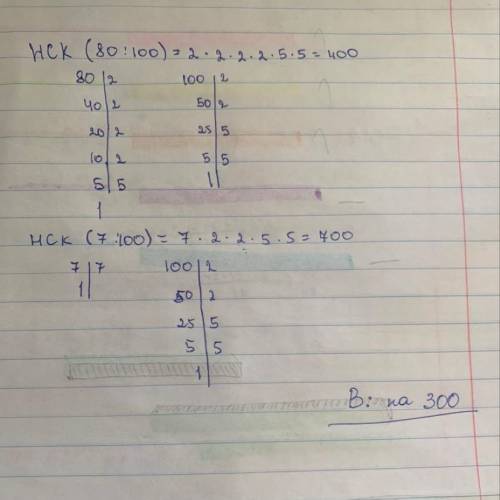 НСК (80:100) = 2 · 2 · 2 · 2 · 5 · 5 = 400
80 | 2 100 | 2
40 | 2 50 | 2
20 | 2 25 | 5
10 | 2 5 | 5
5 | 5 1 |
1
НСК (7:100) = 7 · 2 · 2 · 5 · 5 = 700
7 | 7 100 | 2
1 | 50 | 2
25 | 5
5 | 5
1 |
В: на 300